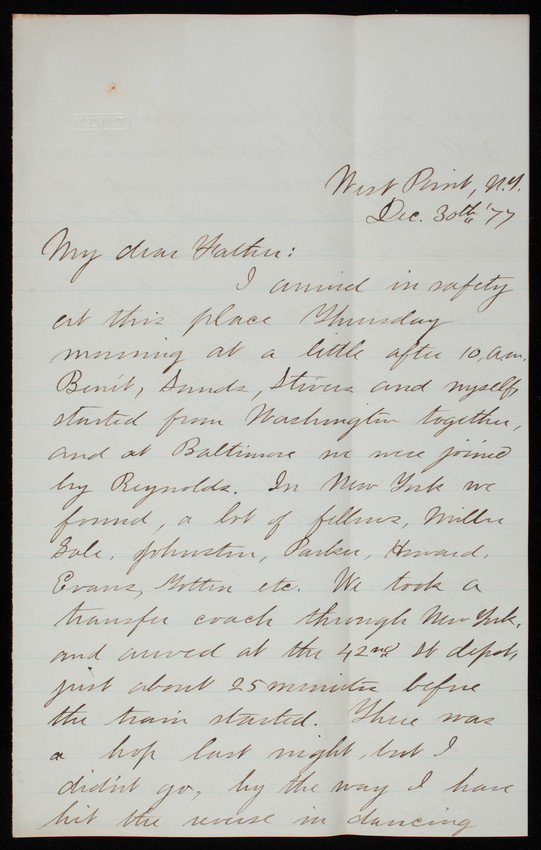 West Point, N.Y.
Dec. 30th '77
My dear Father:
I arrived in safety
at this place Thursday
morning at a little after 10, a.m.
Benét, Sands, Stivers and myself,
started from Washington together,
and at Baltimore we were joined
by Reynolds. In New York we
found, a lot of fellows, Miller
Gale, Johnston, Parker, Howard,
Evans, etc. We took a
transfer coach through New York,
and arrived at the 42nd St depot,
just about 25 minutes before
the train started. There was
a hop last night, but I
didn't go, by the way I have
hit the reverse in dancing